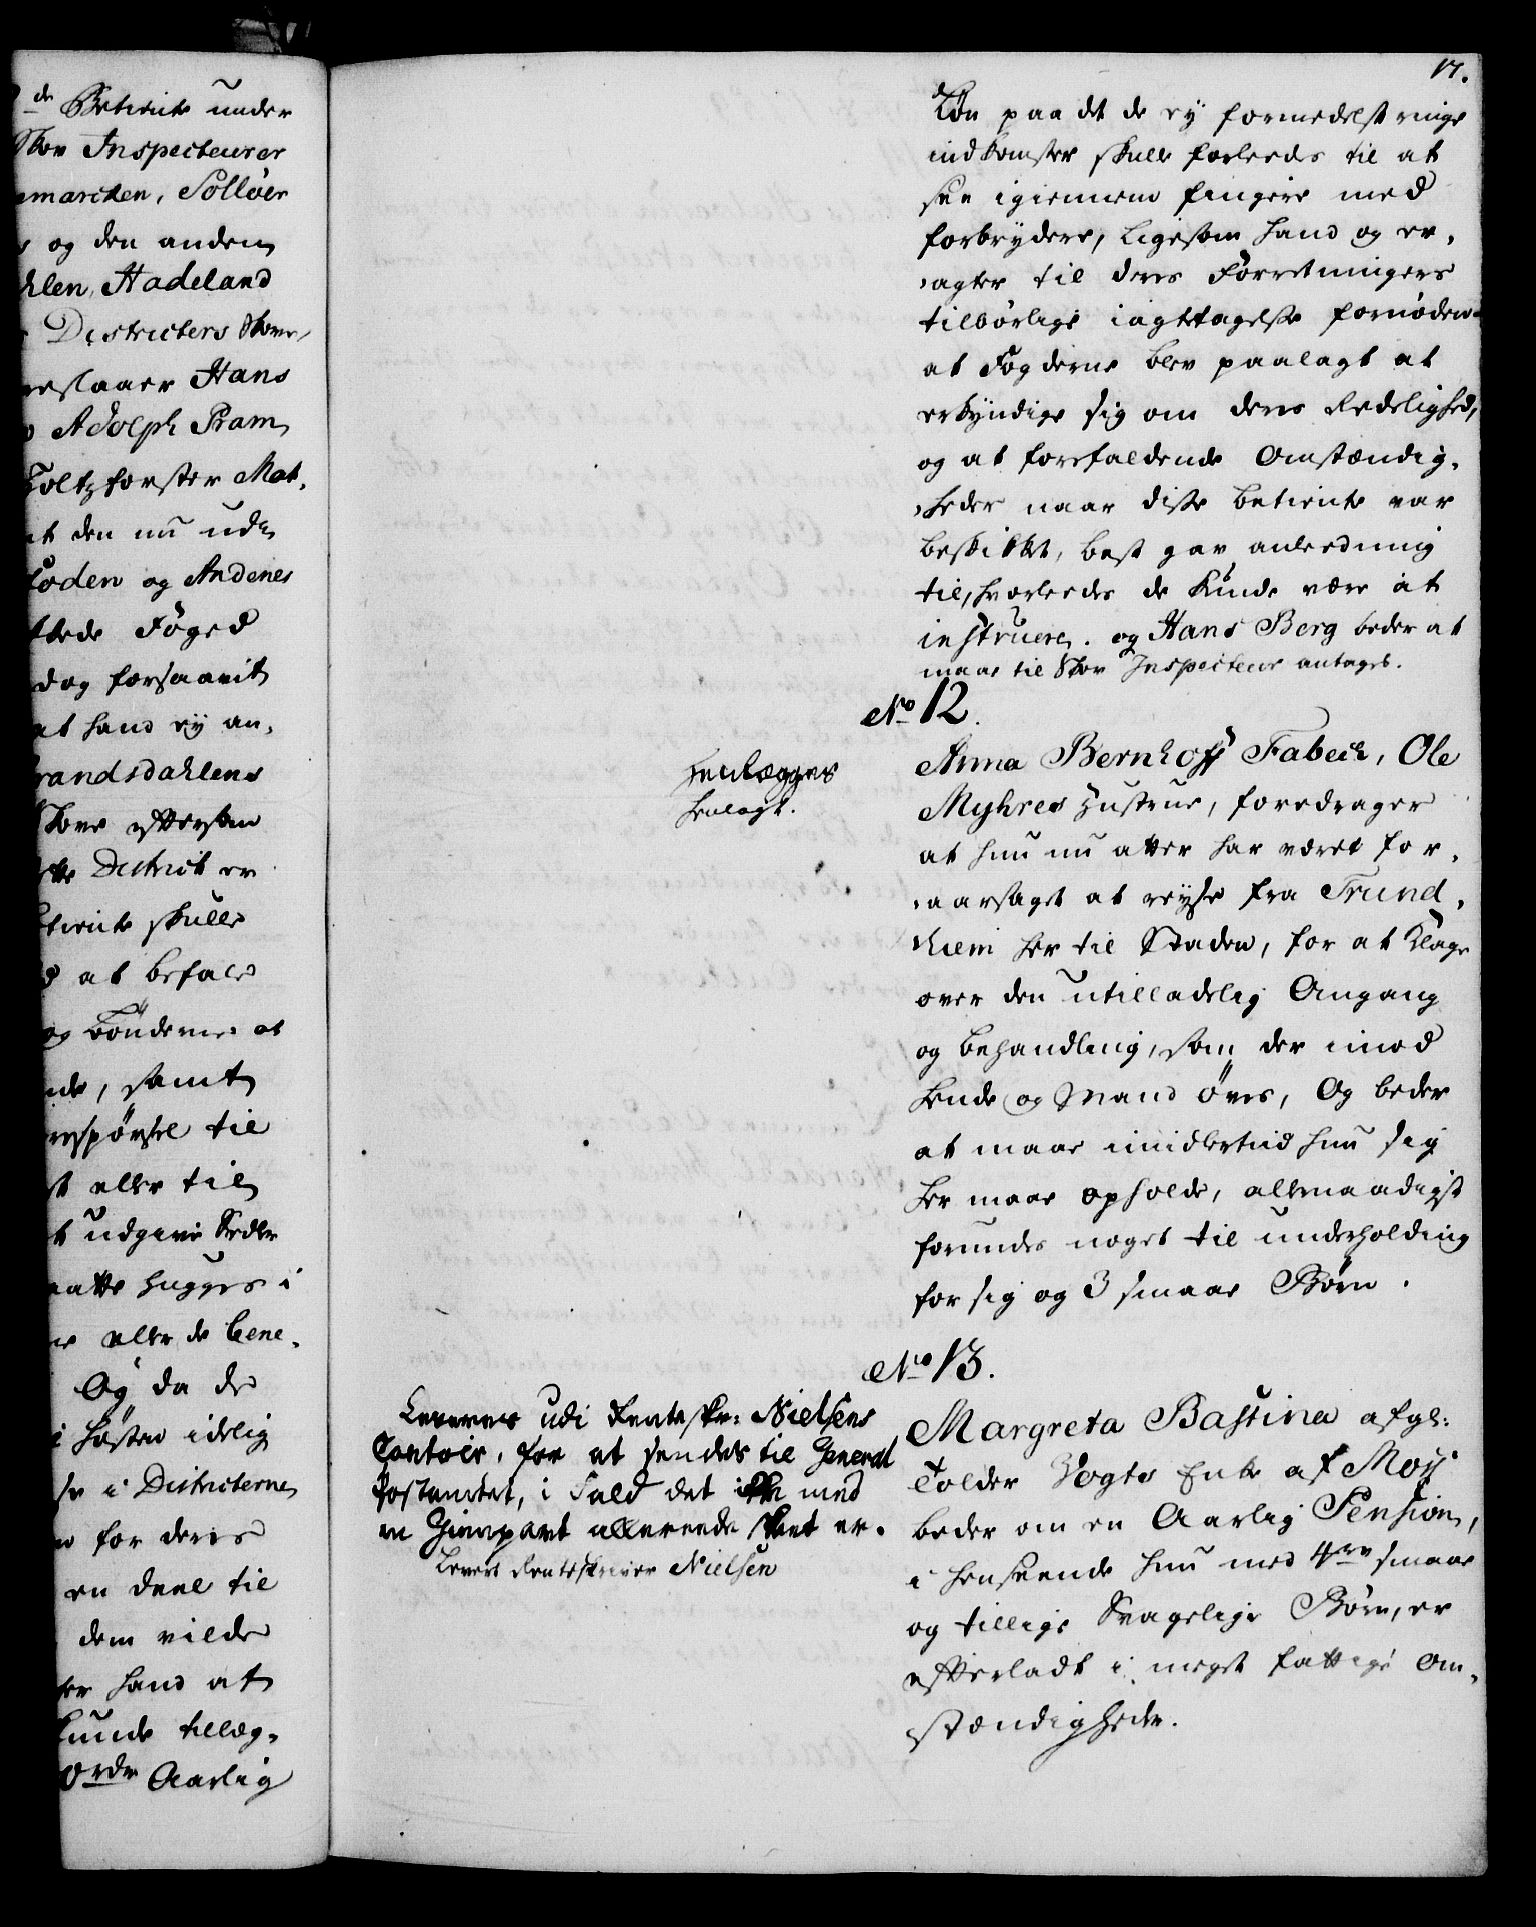 de Betiente under
Skov Inspecteurer
marcken, Solløer
og den anden
hlen, Hadeland
Districters Skove,
reslaaer Hans
Adolph Pram
Holtzforster Mat,
at den nu ude
foden og Andenes
ttede Foged
dog forsaavit
at hand ey an,
brandsdahlens
Skove eftersom
ette District er
etiente skulle
at befale
og Bønderne at
nde, samt
respørsel til
st eller til
t udgive Sedler
aatte hugges i
ne eller de bene,
Og da de
i høsten idelig
se i Districterne
for deris
en deel til
dem vilde
er hand at
kunde tillæg,
0rdr Aarlig
17.
Løn paa det de ey formedelst ringe
indkomster skulle forleedes til at
see igiennem fingre med
forbrydere, ligesom hand og er,
agter til deres Forretningers
tilbørlige iagttagelse fornøden
at Fogderne blev paalagt at
erkyndige sig om deres Redelighed,
og at forefaldende Omstændig,
heder naar disse betiente var
beskikket, best gav anledning
til, hvorledes de kunde være at
instruere. og Hans Berg beder at
maae til Skov Inspecteur antaget.
No 12.
Henlægges
henlagt.
Anna Bernhoff Fabech, Ole
Myhres Hustrue, foredrager
at hun nu atter har været for,
aarsaget at reyse fra Trund,
hiem her til Staden, for at klage
over den utilladelig Omgang
og behandling, som der imod
hende og Mand øves, Og beder
at maae imidlertid hun sig
her maae opholde, allernaadigst
forundes noget til underholding
for sig og 3 smaae Børn.
No 13.
Leveres udi Renteskr: Nielsens
Contoir, for at sendes til General
Postamtet, i Fald det ikke med
en Gienpart allereede skeet er.
Levert Renteskriver Nielsen
Margreta Bastina afgl:
Tolder Vogts Enke af Moss
beder om en Aarlig Pension,
i henseende hun med 4re smaae
og tillige Svagelige Børn, er
efterladt i meget fattige Om,
stændigheder.